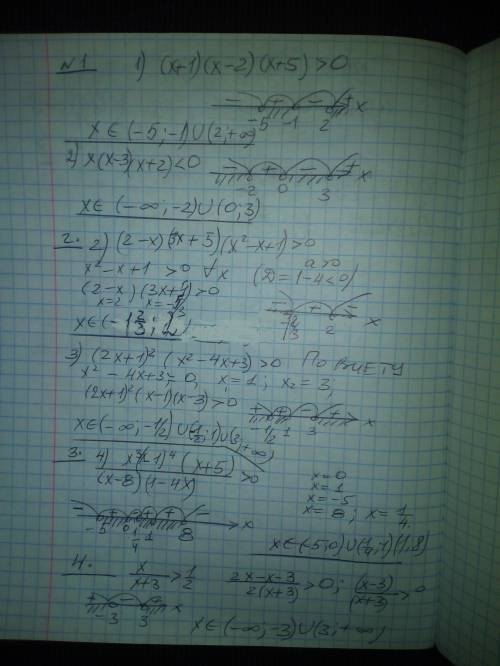 №1 1) (x+1)(x-2)(x+5)>0
- + - + x
-5 -1 2
x ∈ (-5;-1)∪(2;+∞)
2) x(x-3)(x+2)<0
- + - + x
-2 0 3
x ∈ (-∞;-2)∪(0;3)
2. 2) (2-x)(3x+5)(x²-x+1)>0
x²-x+1 >0 ∀x a>0 (D=1-4<0)
(2-x)(3x+5)>0
x=2 x=-5/3
- + - x
2
3) (2x+1)²(x²-4x+3)>0 По Виету
x²-4x+3=0, x₁=1; x₂=3;
(2x+1)²(x-1)(x-3)>0
+ + - + x
-1/2 1 3
x∈(-∞;-1/2)∪(1/2;1)∪(3;+∞)
3. 4) x³(x-1)⁴(x+5) / (x-8)(1-4x) >0
x=0
x=1
x=-5
x=8; x=1/4
- + - + + - x
-5 0 1/4 1 8
x∈(-5;0)∪(1/4;1)(1;8)
4. x/(x+3)>1/2 (2x-x-3)/(2(x+3))>0; (x-3)/(x+3)>0
+ - + x
-3 3
x∈(-∞;-3)∪(3;+∞)